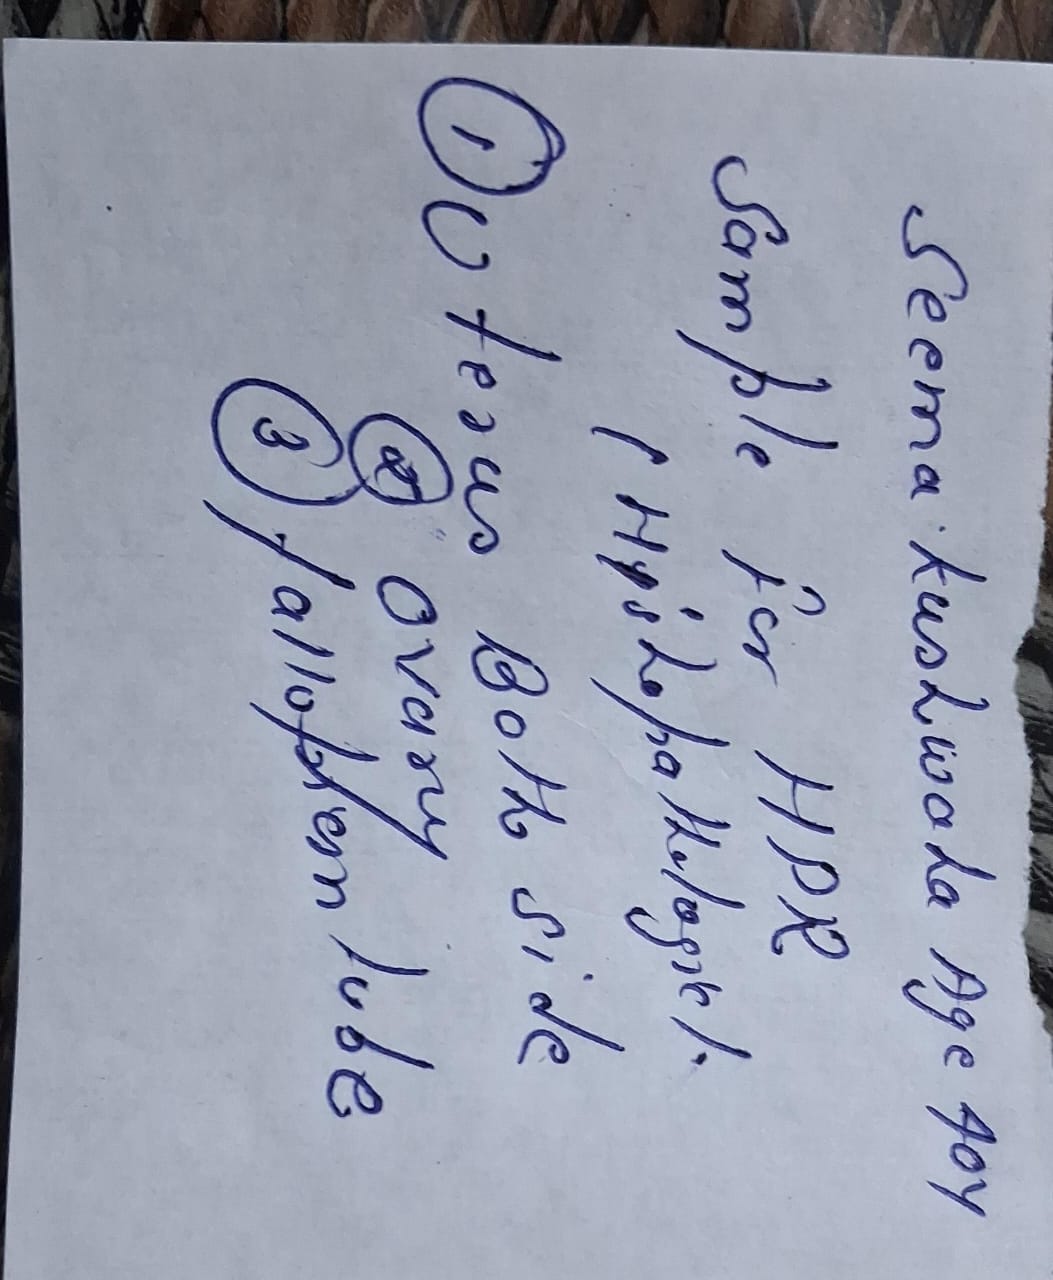 Seema kushwaha Age 40y
Sample for HPR
( Histopathologicl.
① Uterus Both side
② Ovary
③ fallopien tube